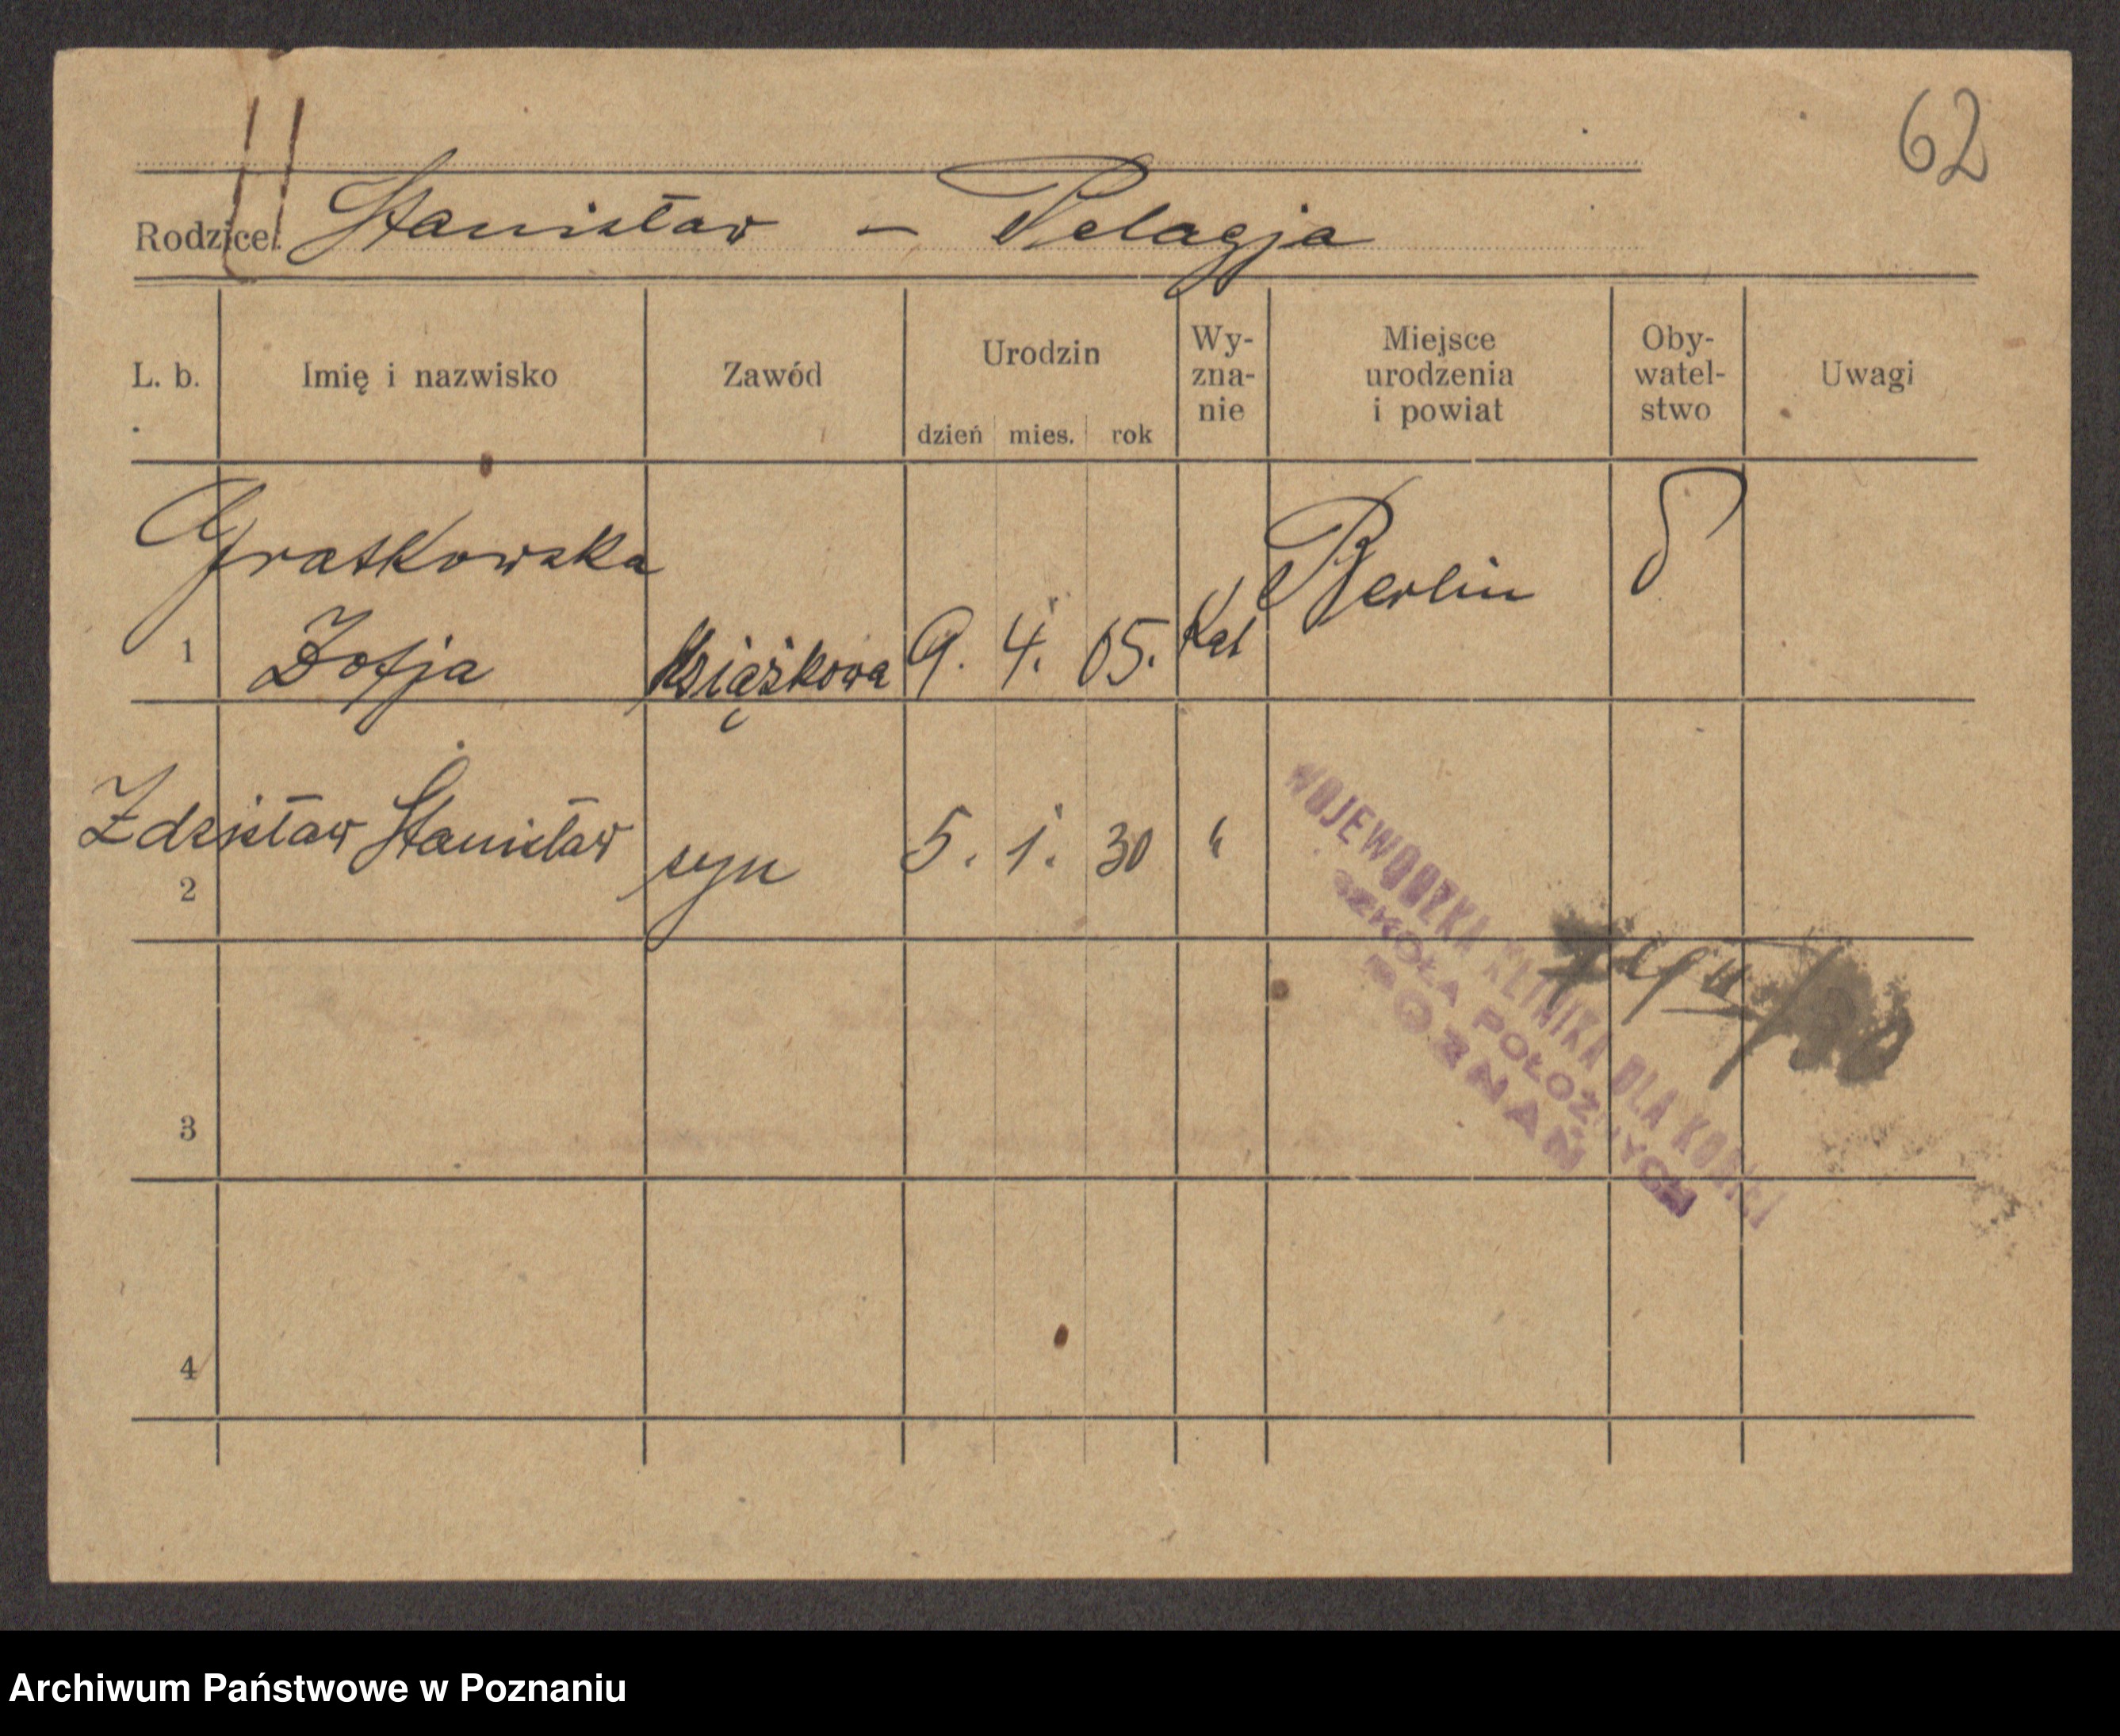 62
Rodzice: Stanisław – Pelagja
L. b. Imię i nazwisko Zawód Urodzin dzień mies. rok Wy-zna-nie Miejsce urodzenia i powiat Oby-watel-stwo Uwagi
Gratkowska
1 Zofja Książkowa 9. 4. 05. Kat Berlin
Zdzisław Stanisław syn 5. 1. 30 "
2
WOJEWÓDZKA KLINIKA DLA KOBIET
SZKOŁA POŁOŻNYCH
POZNAŃ
3
4
Archiwum Państwowe w Poznaniu